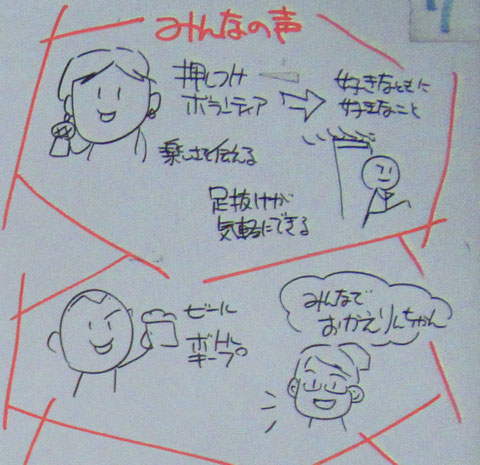 みんなの声
押しつけ
ボランティア
好きなときに
好きなこと
楽しさを伝える
足抜けが
気軽にできる
ビール
ボトル
キープ
みんなで
おかえりんちゃん